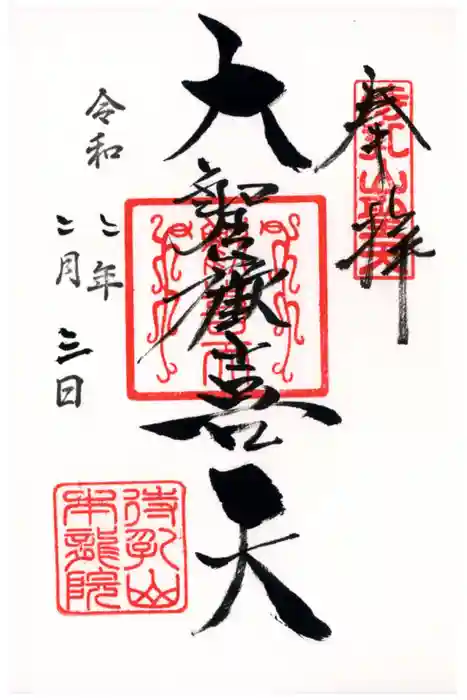 奉拝
待乳山聖天
大聖歓喜天
令和二年
二月三日
待乳山
本龍院